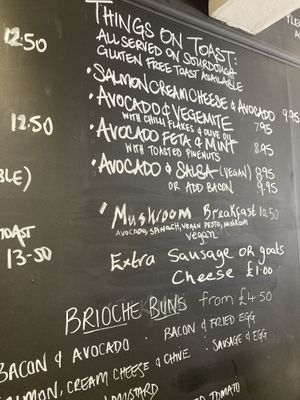 THINGS ON TOAST:
ALL SERVED ON SOURDOUGH
GLUTEN FREE TOAST AVAILABLE
• SALMON CREAM CHEESE & AVOCADO 9.95
• AVOCADO & VEGEMITE 7.95
WITH CHILLI FLAKES & OLIVE OIL
• AVOCADO FETA & MINT 8.95
WITH TOASTED PINENUTS
• AVOCADO & SALSA (VEGAN) 8.95
OR ADD BACON 9.95
• Mushroom Breakfast 10.50
AVOCADO, SPINACH, VEGAN PESTO, MUSHROOM
vegan
Extra Sausage or goats
Cheese £1.00
BRIOCHE BUNS from £4.50
BACON & AVOCADO · BACON & FRIED EGG
SALMON, CREAM CHEESE & CHIVE · SAUSAGE & EGG
MUSTARD
TOMATO
12.50
12.50
BLE)
TOAST
13.50